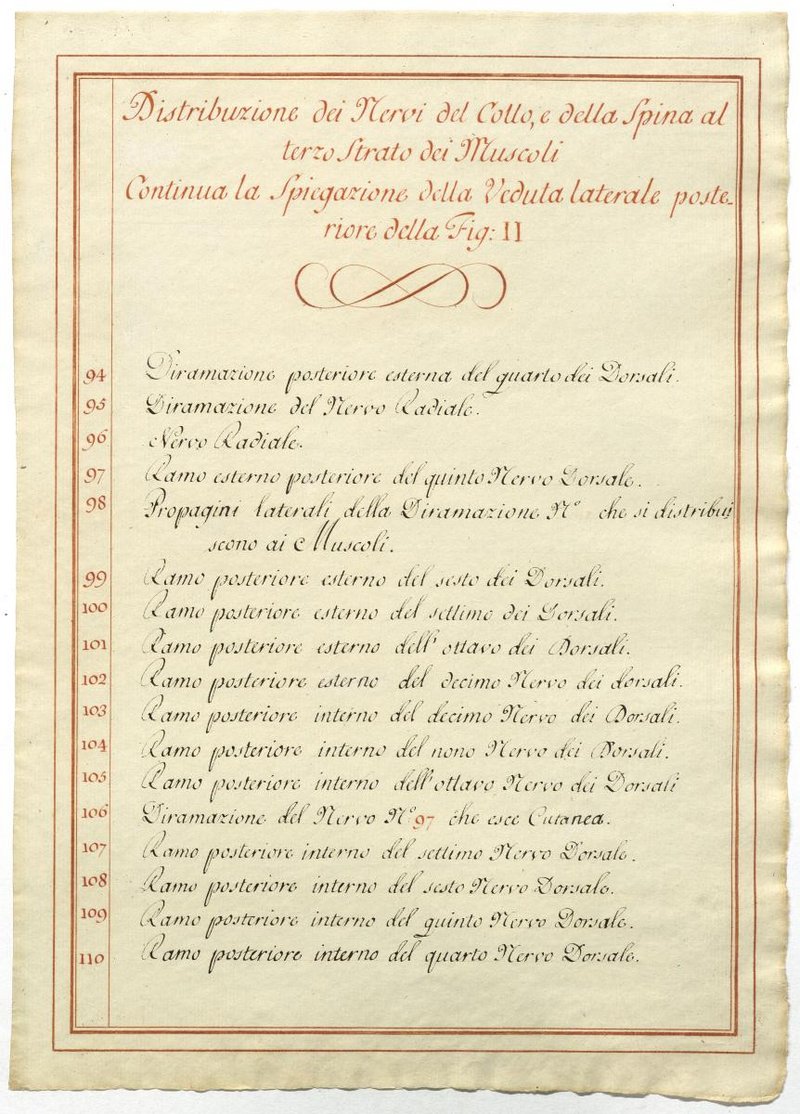 Distribuzione dei Nervi del Collo, e della Spina al
terzo Strato dei Muscoli
Continua la Spiegazione della Veduta laterale poste-
riore della Fig: II
94 Diramazione posteriore esterna del quarto dei Dorsali.
95 Diramazione del Nervo Radiale.
96 Nervo Radiale.
97 Ramo esterno posteriore del quinto Nervo Dorsale.
98 Propagini laterali della Diramazione N.º che si distribui
scono ai Muscoli.
99 Ramo posteriore esterno del sesto dei Dorsali.
100 Ramo posteriore esterno del settimo dei Dorsali.
101 Ramo posteriore esterno dell' ottavo dei Dorsali.
102 Ramo posteriore esterno del decimo Nervo dei dorsali.
103 Ramo posteriore interno del decimo Nervo dei Dorsali.
104 Ramo posteriore interno del nono Nervo dei Dorsali.
105 Ramo posteriore interno dell' ottavo Nervo dei Dorsali
106 Diramazione del Nervo N.º 97 che esce Cutanea.
107 Ramo posteriore interno del settimo Nervo Dorsale.
108 Ramo posteriore interno del sesto Nervo Dorsale.
109 Ramo posteriore interno del quinto Nervo Dorsale.
110 Ramo posteriore interno del quarto Nervo Dorsale.